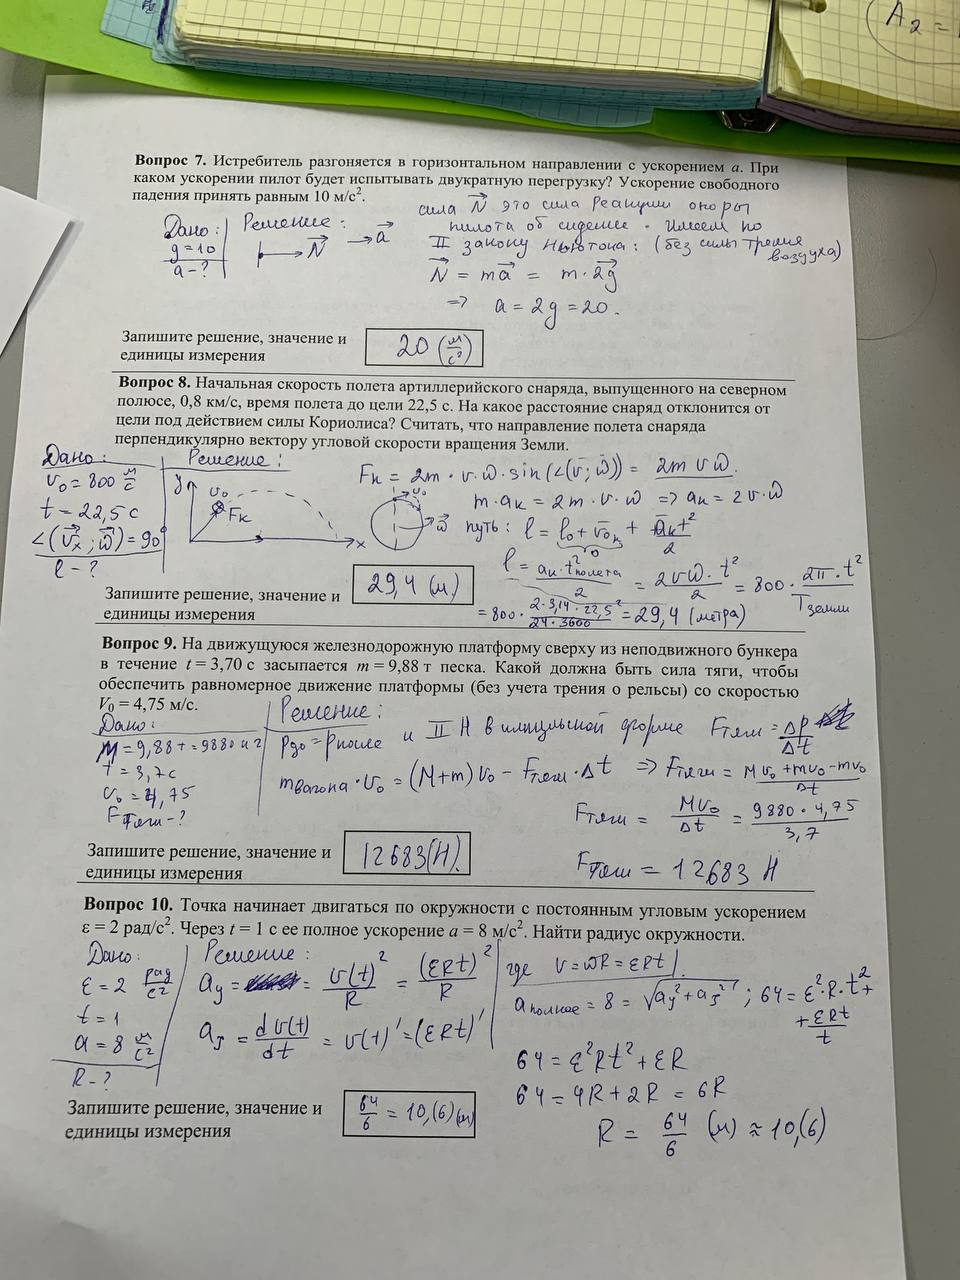 A₂ =
Вопрос 7. Истребитель разгоняется в горизонтальном направлении с ускорением a. При
каком ускорении пилот будет испытывать двукратную перегрузку? Ускорение свободного
падения принять равным 10 м/с².
сила N⃗ это сила реакции опоры
Дано: Решение: → a⃗ пилота об сидение. Имеем по
g = 10 N⃗ II закону Ньютона: (без силы трения
воздуха)
a - ? N⃗ = ma⃗ = m · 2g⃗
=> a = 2g = 20.
Запишите решение, значение и
единицы измерения
20 (м/с²)
Вопрос 8. Начальная скорость полета артиллерийского снаряда, выпущенного на северном
полюсе, 0,8 км/с, время полета до цели 22,5 с. На какое расстояние снаряд отклонится от
цели под действием силы Кориолиса? Считать, что направление полета снаряда
перпендикулярно вектору угловой скорости вращения Земли.
Дано: Решение: Fк = 2m · v · ω · sin(∠(v⃗; ω⃗)) = 2m v ω.
v₀ = 800 м/с y v₀ Fк x v₀ ω⃗ m · aк = 2m · v · ω => aк = 2v·ω
t = 22,5 с путь: l = l₀ + v₀ₖ + aкt²/2
0
∠(v⃗x; ω⃗) = 90
l - ? l = aк · t²полета / 2 = 2vω · t² / 2 = 800 · 2π · t² / Tземли
= 800 · 2 · 3,14 · 22,5² / 24 · 3600 = 29,4 (метра)
Запишите решение, значение и
единицы измерения
29,4 (м)
Вопрос 9. На движущуюся железнодорожную платформу сверху из неподвижного бункера
в течение t = 3,70 с засыпается m = 9,88 т песка. Какой должна быть сила тяги, чтобы
обеспечить равномерное движение платформы (без учета трения о рельсы) со скоростью
V₀ = 4,75 м/с.
Дано: Решение:
M = 9,88 т = 9880 кг Pдо = Pпосле и II Н в импульсной форме Fтяги = ΔP/Δt
t = 3,7 с mвагона · v₀ = (M+m) v₀ - Fтяги · Δt => Fтяги = Mv₀ + mv₀ - mv₀ / Δt
v₀ = 4,75
Fтяги - ? Fтяги = Mv₀/Δt = 9880 · 4,75 / 3,7
Fтяги = 12683 Н
Запишите решение, значение и
единицы измерения
12683 (Н).
Вопрос 10. Точка начинает двигаться по окружности с постоянным угловым ускорением
ε = 2 рад/с². Через t = 1 с ее полное ускорение a = 8 м/с². Найти радиус окружности.
Дано: Решение: где v = ωR = εRt
ε = 2 рад/с² aу = = v(t)²/R = (εRt)²/R aполное = 8 = √(aу² + aτ²); 64 = ε²·R·t² +
+ εRt/t
t = 1
a = 8 м/с² aτ = dv(t)/dt = v(t)' = (εRt)'
64 = ε²Rt² + εR
R - ? 64 = 4R + 2R = 6R
R = 64/6 (м) ≈ 10,(6)
Запишите решение, значение и
единицы измерения
64/6 = 10,(6) (м)